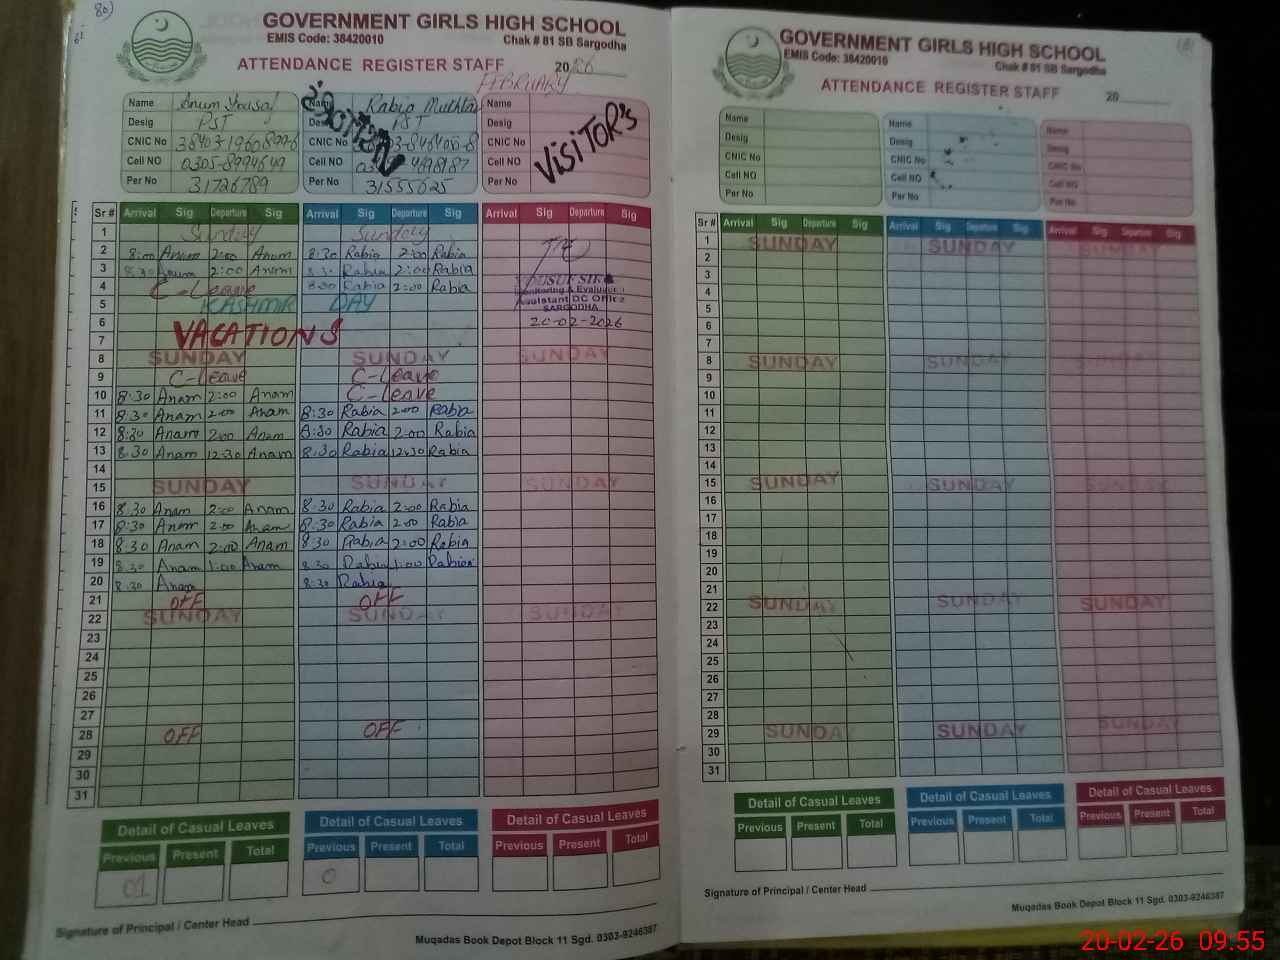 80)
GOVERNMENT GIRLS HIGH SCHOOL
EMIS Code: 38420010 Chak # 81 SB Sargodha
ATTENDANCE REGISTER STAFF 2026
FEBRUARY
Name Anum Yousaf Name Rabia Mukhtar Name
Desig PST Desig PST Desig
CNIC No CNIC No CNIC No
Cell NO 0305-8994649 Cell NO Cell NO
Per No 31726789 Per No 31555625 Per No
VISITOR's
Sr # Arrival Sig Departure Sig Arrival Sig Departure Sig Arrival Sig Departure Sig
1 Sunday Sunday
2 8:00 Anum 2:00 Anum 8:30 Rabia 2:00 Rabia
3 8:30 Anum 2:00 Anum 8:30 Rabia 2:00 Rabia
4 C-Leave 8:00 Rabia 2:00 Rabia
5 KASHMIR DAY
6
7 VACATIONS
Assistant DC Office
SARGODHA
20-02-2026
8 SUNDAY SUNDAY SUNDAY
9 C-Leave C-Leave
10 8:30 Anam 2:00 Anam C-Leave
11 8:30 Anam 2:00 Anam 8:30 Rabia 2:00 Rabia
12 8:30 Anam 2:00 Anam 8:30 Rabia 2:00 Rabia
13 8:30 Anam 12:30 Anam 8:30 Rabia 12:30 Rabia
14
15 SUNDAY SUNDAY SUNDAY
16 8:30 Anam 2:00 Anam 8:30 Rabia 2:00 Rabia
17 8:30 Anam 2:00 Anam 8:30 Rabia 2:00 Rabia
18 8:30 Anam 2:00 Anam 8:30 Rabia 2:00 Rabia
19 8:30 Anam 1:00 Anam 8:30 Rabia 1:00 Rabia
20 8:30 Anam 8:30 Rabia
21 OFF OFF
22 SUNDAY SUNDAY SUNDAY
23
24
25
26
27
28 OFF OFF
29
30
31
Detail of Casual Leaves Detail of Casual Leaves Detail of Casual Leaves
Previous Present Total Previous Present Total Previous Present Total
01 0
Signature of Principal / Center Head
Muqadas Book Depot Block 11 Sgd. 0303-9246387
GOVERNMENT GIRLS HIGH SCHOOL
EMIS Code: 38420010 Chak # 81 SB Sargodha
ATTENDANCE REGISTER STAFF 20
Name Name Name
Desig Desig Desig
CNIC No CNIC No CNIC No
Cell NO Cell NO Cell NO
Per No Per No Per No
Sr # Arrival Sig Departure Sig Arrival Sig Departure Sig Arrival Sig Departure Sig
1 SUNDAY SUNDAY SUNDAY
2
3
4
5
6
7
8 SUNDAY SUNDAY
9
10
11
12
13
14
15 SUNDAY SUNDAY SUNDAY
16
17
18
19
20
21
22 SUNDAY SUNDAY SUNDAY
23
24
25
26
27
28
29 SUNDAY SUNDAY SUNDAY
30
31
Detail of Casual Leaves Detail of Casual Leaves Detail of Casual Leaves
Previous Present Total Previous Present Total Previous Present Total
Signature of Principal / Center Head
Muqadas Book Depot Block 11 Sgd. 0303-9246387
20-02-26 09:55